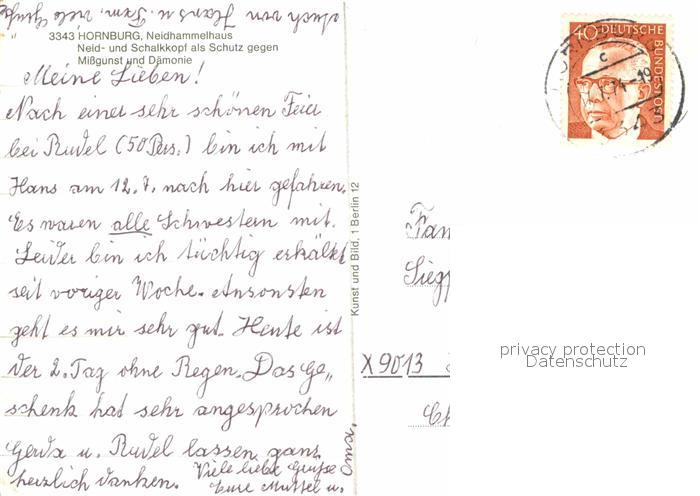 Auch von Hans u. Fam. viele Grüße
3343 HORNBURG, Neidhammelhaus
Neid- und Schalkkopf als Schutz gegen
Mißgunst und Dämonie
Meine Lieben!
Nach einer sehr schönen Feier
bei Rudel (50 Pers.) bin ich mit
Hans am 12.7. nach hier gefahren.
Es waren alle Schwestern mit.
Leider bin ich tüchtig erkältet
seit voriger Woche. Ansonsten
geht es mir sehr gut. Heute ist
der 2. Tag ohne Regen. Das Ge„
schenk hat sehr angesprochen
Gerda u. Rudel lassen ganz
herzlich danken. Viele liebe Grüße
Eure Muttel u.
Oma.
Kunst und Bild, 1 Berlin 12
40 DEUTSCHE
BUNDESPOST
c
Fam
Siegf
X9013
privacy protection
Datenschutz